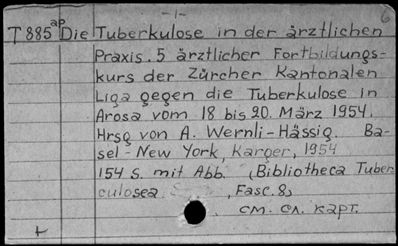 -1- 6
T885ap Die Tuberkulose in der ärztlichen
Praxis. 5 ärztlicher Fortbildungs-
kurs der Zürcher Kantonalen
Liga gegen die Tuberkulose in
Arosa vom 18 bis 20. März 1954.
Hrsg von A. Wernli-Hässig. Ba-
sel-New York, Karger, 1954
154 S. mit Abb. (Bibliotheca Tuber
culosea , Fasc. 8)
см. сл. карт.